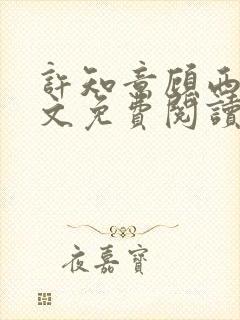 許知意顧西
文免費閱讀
夜嘉寶